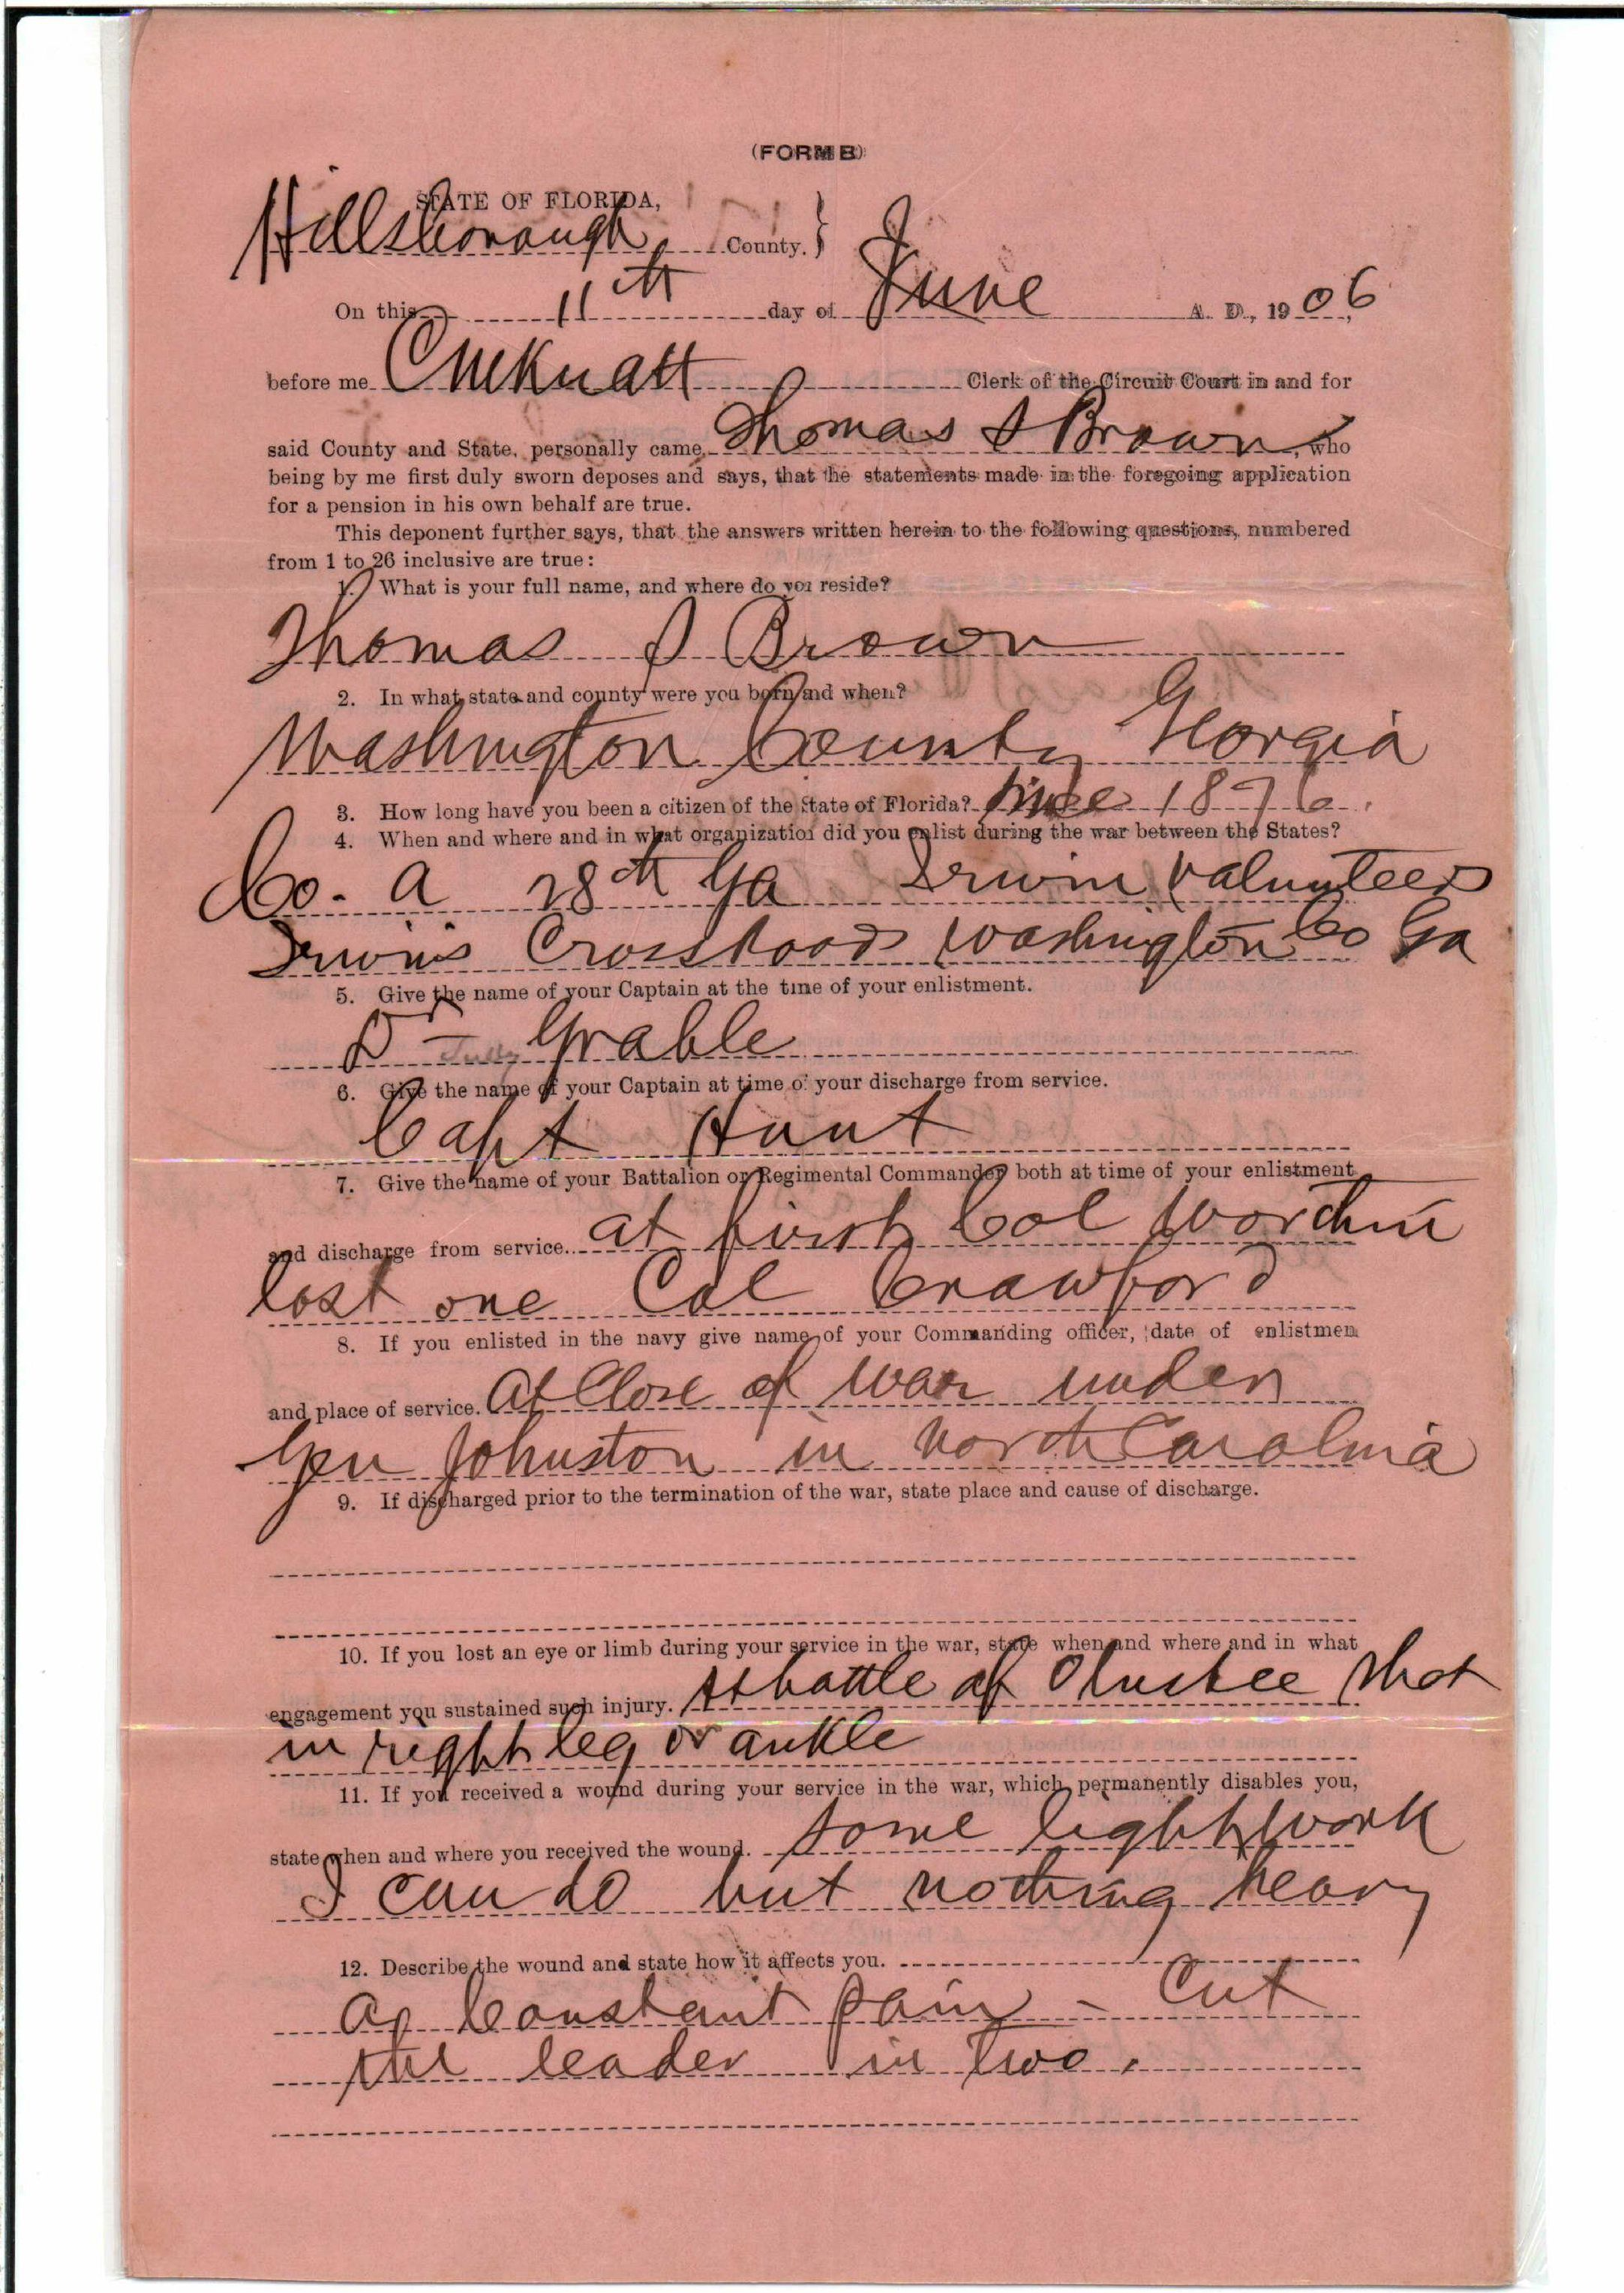 (FORM B)
STATE OF FLORIDA,
Hillsborough County. }
On this 11th day of June A. D., 1906,
before me Clerk of the Circuit Court in and for
said County and State, personally came Thomas Brown, who
being by me first duly sworn deposes and says, that the statements made in the foregoing application
for a pension in his own behalf are true.
This deponent further says, that the answers written herein to the following questions, numbered
from 1 to 26 inclusive are true:
1. What is your full name, and where do you reside?
Thomas Brown
2. In what state and county were you born and when?
Washington County Georgia
3. How long have you been a citizen of the State of Florida? Since 1876.
4. When and where and in what organization did you enlist during the war between the States?
Co. A 28th Ga Irwin Valunteers
Irwin's Cross Roads Washington Co Ga
5. Give the name of your Captain at the time of your enlistment.
Dr Grable
6. Give the name of your Captain at time of your discharge from service.
Capt Hunt
7. Give the name of your Battalion or Regimental Commander both at time of your enlistment
and discharge from service. at first Col
last one Col Crawford
8. If you enlisted in the navy give name of your Commanding officer, date of enlistmen
and place of service. At Close of war under
Gen Johnston in North Carolina
9. If discharged prior to the termination of the war, state place and cause of discharge.
10. If you lost an eye or limb during your service in the war, state when and where and in what
engagement you sustained such injury. At battle of Olustee Shot
in right leg or ankle
11. If you received a wound during your service in the war, which permanently disables you,
state when and where you received the wound. Some light work
I can do but nothing heavy
12. Describe the wound and state how it affects you.
Constant pain - Cut
the leader in two.